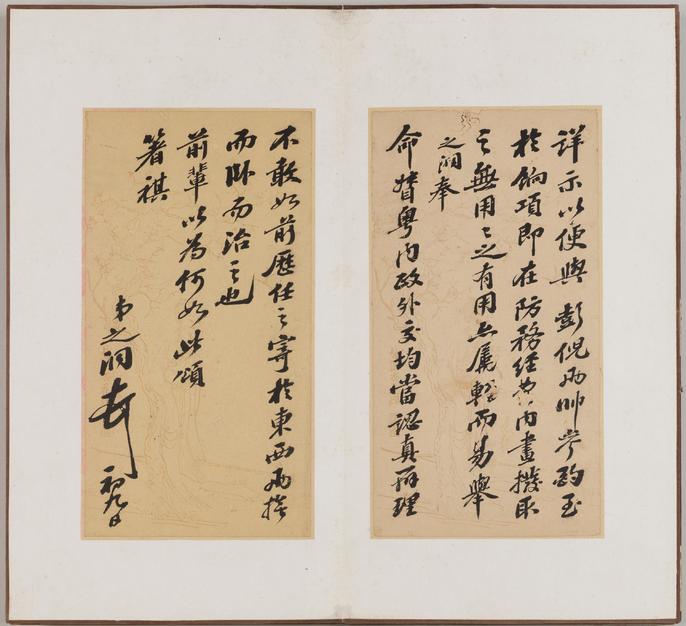 詳示以便與彭倪兩帥商酌至
於餉項即在防務經費內畫撥取
之無用之之有用亦屬輕而易舉
之洞奉
命督粵內政外交均當認真辦理
不敢如前歷任之寄於東西兩
而臥而治之也
前輩以為何如此頌
箸祺
弟之洞
初九日